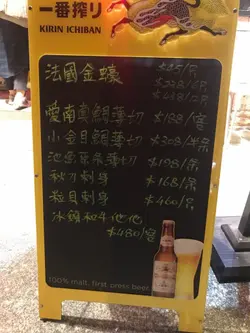 一番搾り
KIRIN ICHIBAN
法國金蠔 $65/只
$228/6只
$448/12只
愛南真鯛薄切 $188/客
小金目鯛薄切 $308/半條
池魚奈良薄切 $198/條
秋刀刺身 $168/條
粒貝刺身 $460/只
冰鎮和牛他他
$480/客
100% malt, first press beer.